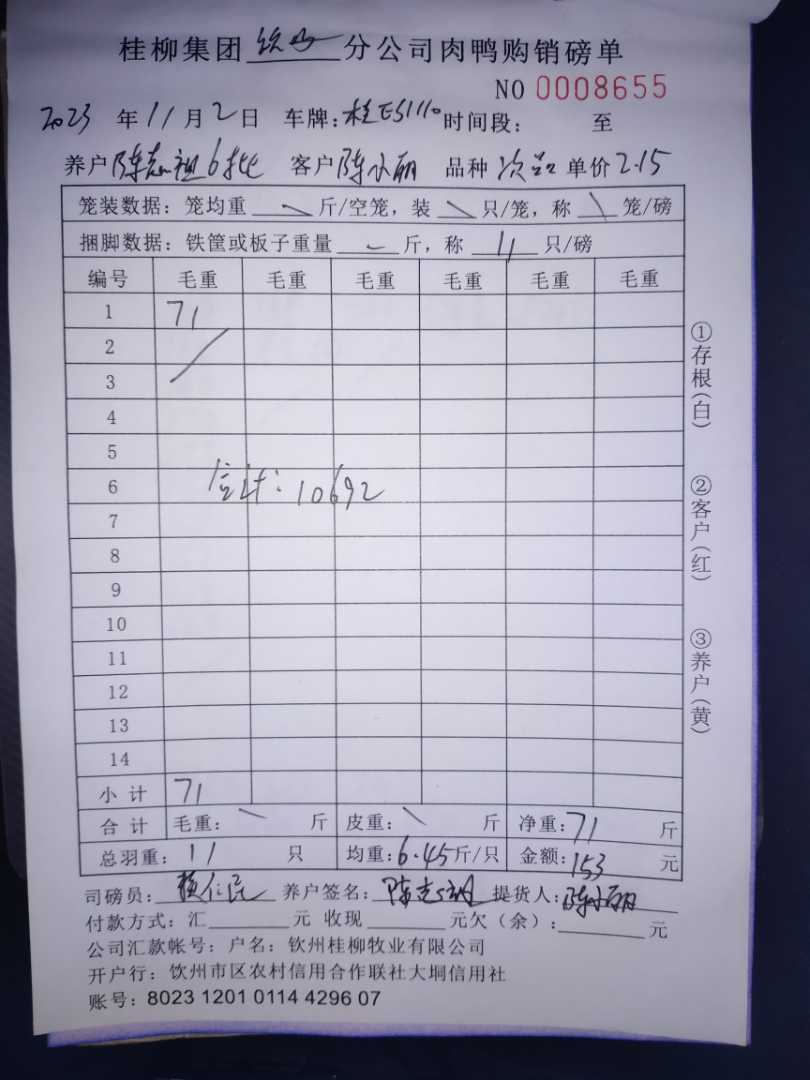 桂柳集团 钦州 分公司肉鸭购销磅单
NO 0008655
2023 年 11 月 2 日 车牌: 桂ES1110 时间段: 至
养户 陈志祖 6批 客户 陈小丽 品种 次品 单价 2.15
笼装数据: 笼均重 斤/空笼, 装 只/笼, 称 笼/磅
捆脚数据: 铁筐或板子重量 斤, 称 11 只/磅
编号 毛重 毛重 毛重 毛重 毛重 毛重
1 71
2
3
4
5
6 合计: 10692
7
8
9
10
11
12
13
14
小 计 71
合 计 毛重: 斤 皮重: 斤 净重: 71 斤
总羽重: 11 只 均重: 6.45 斤/只 金额: 153 元
司磅员: 养户签名: 陈志祖 提货人: 陈小丽
付款方式: 汇 元 收现 元欠 (余): 元
公司汇款帐号: 户名: 钦州桂柳牧业有限公司
开户行: 钦州市区农村信用合作联社大垌信用社
账号: 8023 1201 0114 4296 07
①存根(白)
②客户(红)
③养户(黄)